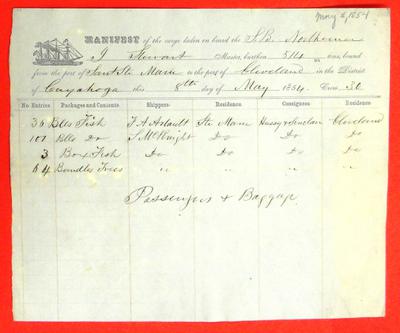 May 8, 1854
MANIFEST of the cargo taken on board the S.B. Northerner
J Stewart Master, burthen 514 tons, bound
from the port of Sault Ste Marie to the port of Cleveland in the District
of Cuyahoga this 8th day of May 1854. Crew 30
No. Entries Packages and Contents. Shippers. Residence Consignees. Residence
36 Bbls Fish Ste Marie Hussey & Sinclair Cleveland
107 Bbls Do S McKnight Do Do Do
3 Box Fish Do Do Do Do
64 Bundles Trees " " " "
Passengers & Baggage